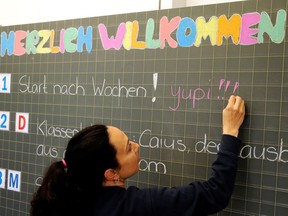 HERZLICH WILLKOMMEN
1 Start nach Wochen! yupi!!!
2 D Klassen Caius, der ausb
aus om
3 M